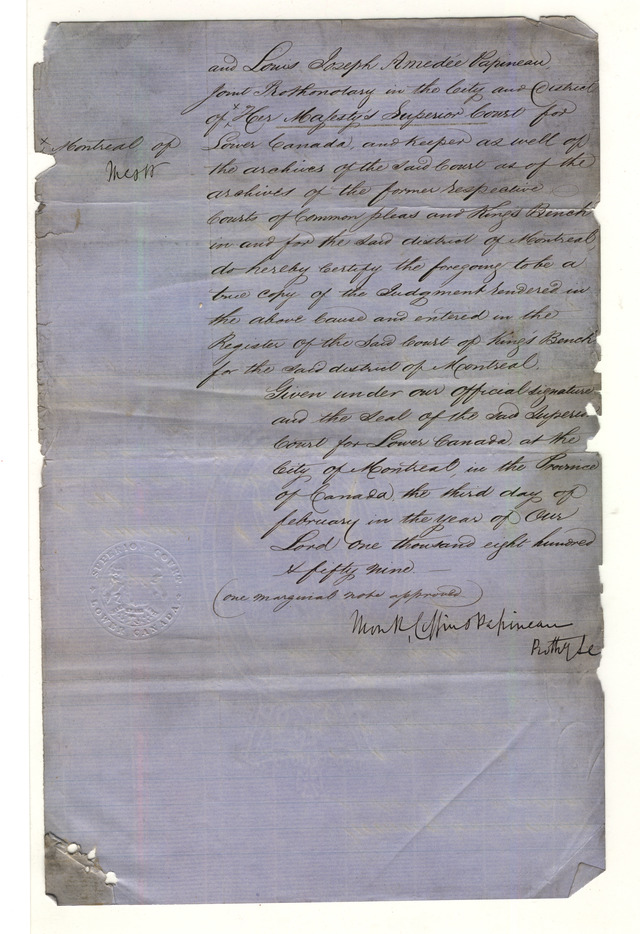 and Louis Joseph Amedée Papineau
Joint Prothonotary in the City and District
of × Her Majesty's Superior Court for
× Montreal of
Lower Canada, and keeper as well of
the archives of the said Court as of the
archives of the former respective
Courts of Common pleas and King's Bench
in and for the said district of Montreal
do hereby Certify the foregoing to be a
true copy of the Judgment rendered in
the above Cause and entered in the
Register of the said Court of King's Bench
for the said district of Montreal.
Given under our official signature
and the seal of the said Superior
Court for Lower Canada, at the
City of Montreal, in the Province
of Canada, the third day of
february in the year of Our
Lord one thousand eight hundred
& fifty nine. —
(one marginal note approved)
Monk, Coffin & Papineau
SUPERIOR COURT
LOWER CANADA